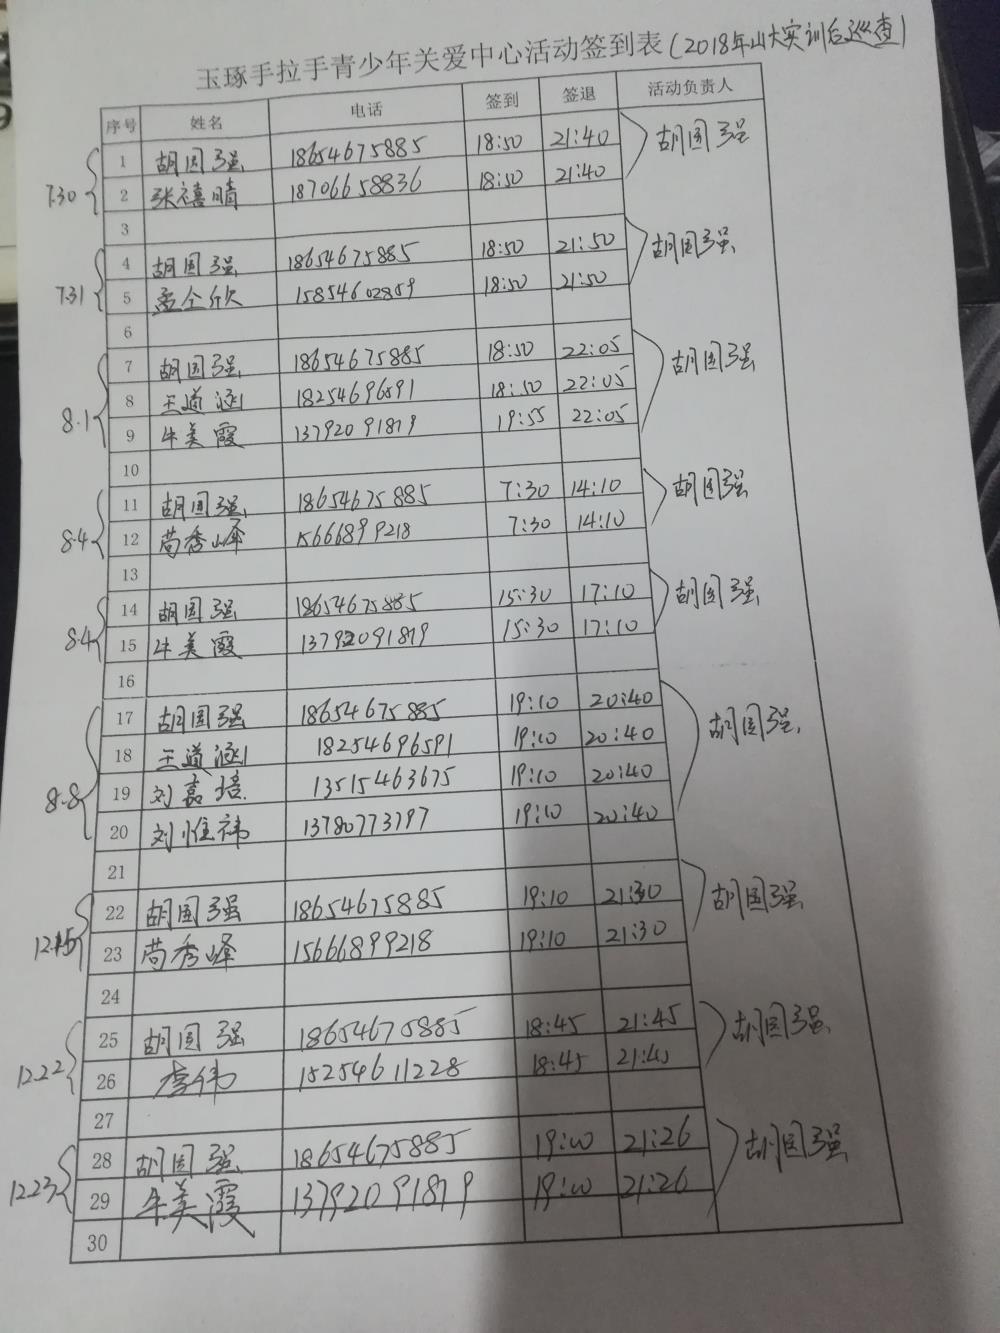 玉琢手拉手青少年关爱中心活动签到表(2018年山大实训后巡查)
序号 姓名 电话 签到 签退 活动负责人
7.30
1 胡国强 18654675885 18:50 21:40 胡国强
2 张禧晴 18706658836 18:50 21:40
3
7.31
4 胡国强 18654675885 18:50 21:50 胡国强
5 孟仝欣 15854602859 18:50 21:50
6
8.1
7 胡国强 18654675885 18:50 22:05 胡国强
8 王道涵 18254696591 18:50 22:05
9 牛美霞 13792091879 19:55 22:05
10
8.4
11 胡国强 18654675885 7:30 14:10 胡国强
12 苘秀峰 15666899218 7:30 14:10
13
8.4
14 胡国强 18654675885 15:30 17:10 胡国强
15 牛美霞 13792091879 15:30 17:10
16
8.8
17 胡国强 18654675885 19:10 20:40 胡国强
18 王道涵 18254696591 19:10 20:40
19 刘嘉培 13515463675 19:10 20:40
20 刘惟祎 13780773797 19:10 20:40
21
12.15
22 胡国强 18654675885 19:10 21:30 胡国强
23 苘秀峰 15666899218 19:10 21:30
24
12.22
25 胡国强 18654675885 18:45 21:45 胡国强
26 李伟 15254611228 18:45 21:45
27
12.23
28 胡国强 18654675885 19:00 21:26 胡国强
29 牛美霞 13792091879 19:00 21:26
30